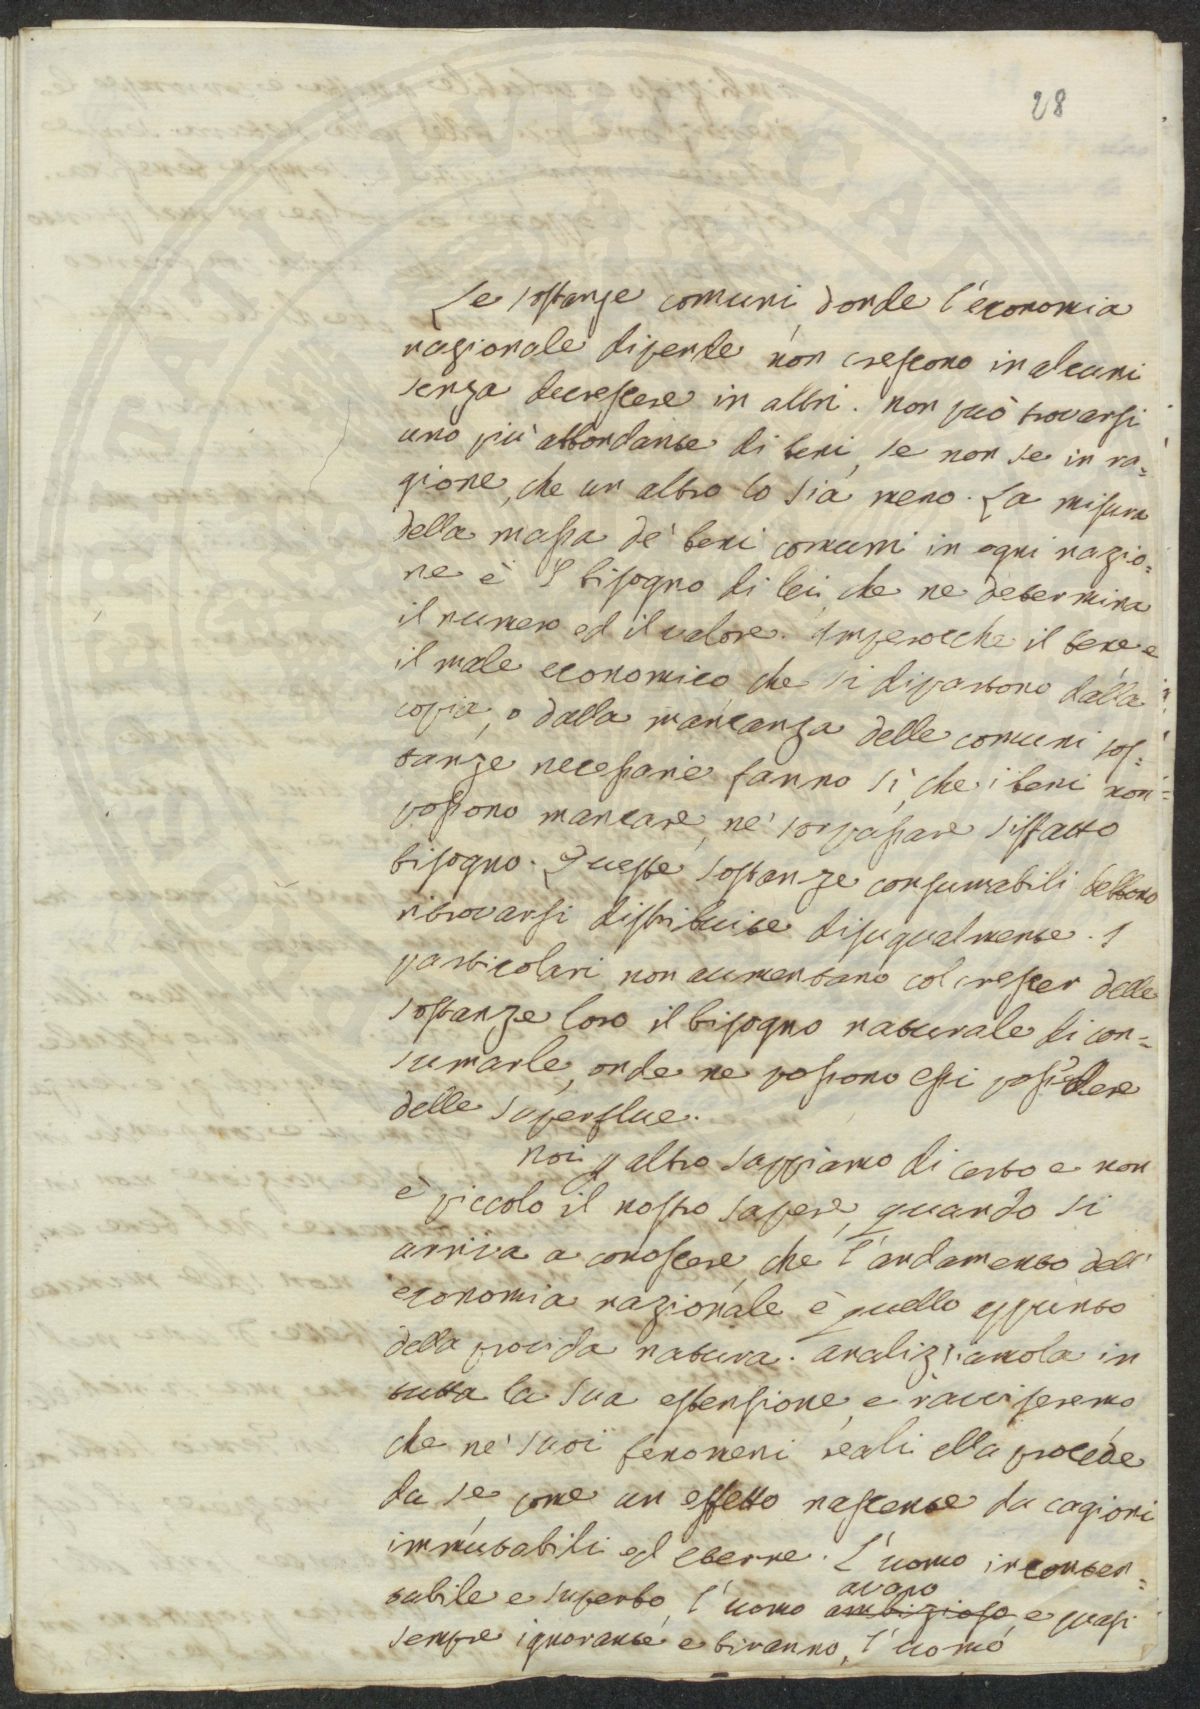 28
Le sostanze comuni, donde l'economia
nazionale dipende non crescono in alcuni
senza decrescere in altri. Non può trovarsi
uno più abbondante di beni, se non se in ra=
gione, che un altro lo sia meno. La misura
della massa de' beni comuni in ogni nazio=
ne è il bisogno di lei, che ne determina
il numero ed il valore. Imperocche il bene e
il male economico, che si dipartono dalla
copia, o dalla mancanza delle comuni sos=
tanze necessarie fanno sì, che i beni non
possono mancare, ne' sorpassare siffatto
bisogno. Queste sostanze consumabili debbono
ritrovarsi distribuite disugualmente. I
particolari non aumentano col crescer delle
sostanze loro il bisogno naturale di con=
sumarle, onde ne possono essi possedere
delle superflue.
Noi p altro sappiamo di certo e non
è piccolo il nostro sapere, quando si
arriva a conoscere, che l'andamento dell'
economia nazionale è quello appunto
della provida natura. Analizziamola in
tutta la sua estensione, e ravviseremo
che ne' suoi fenomeni reali ella procede
da se, come un effetto nascente da cagioni
immutabili ed eterne. L'uomo inconten=
avaro
tabile e superbo, l'uomo ambizioso, e quasi
sempre ignorante e tiranno, l'uomo